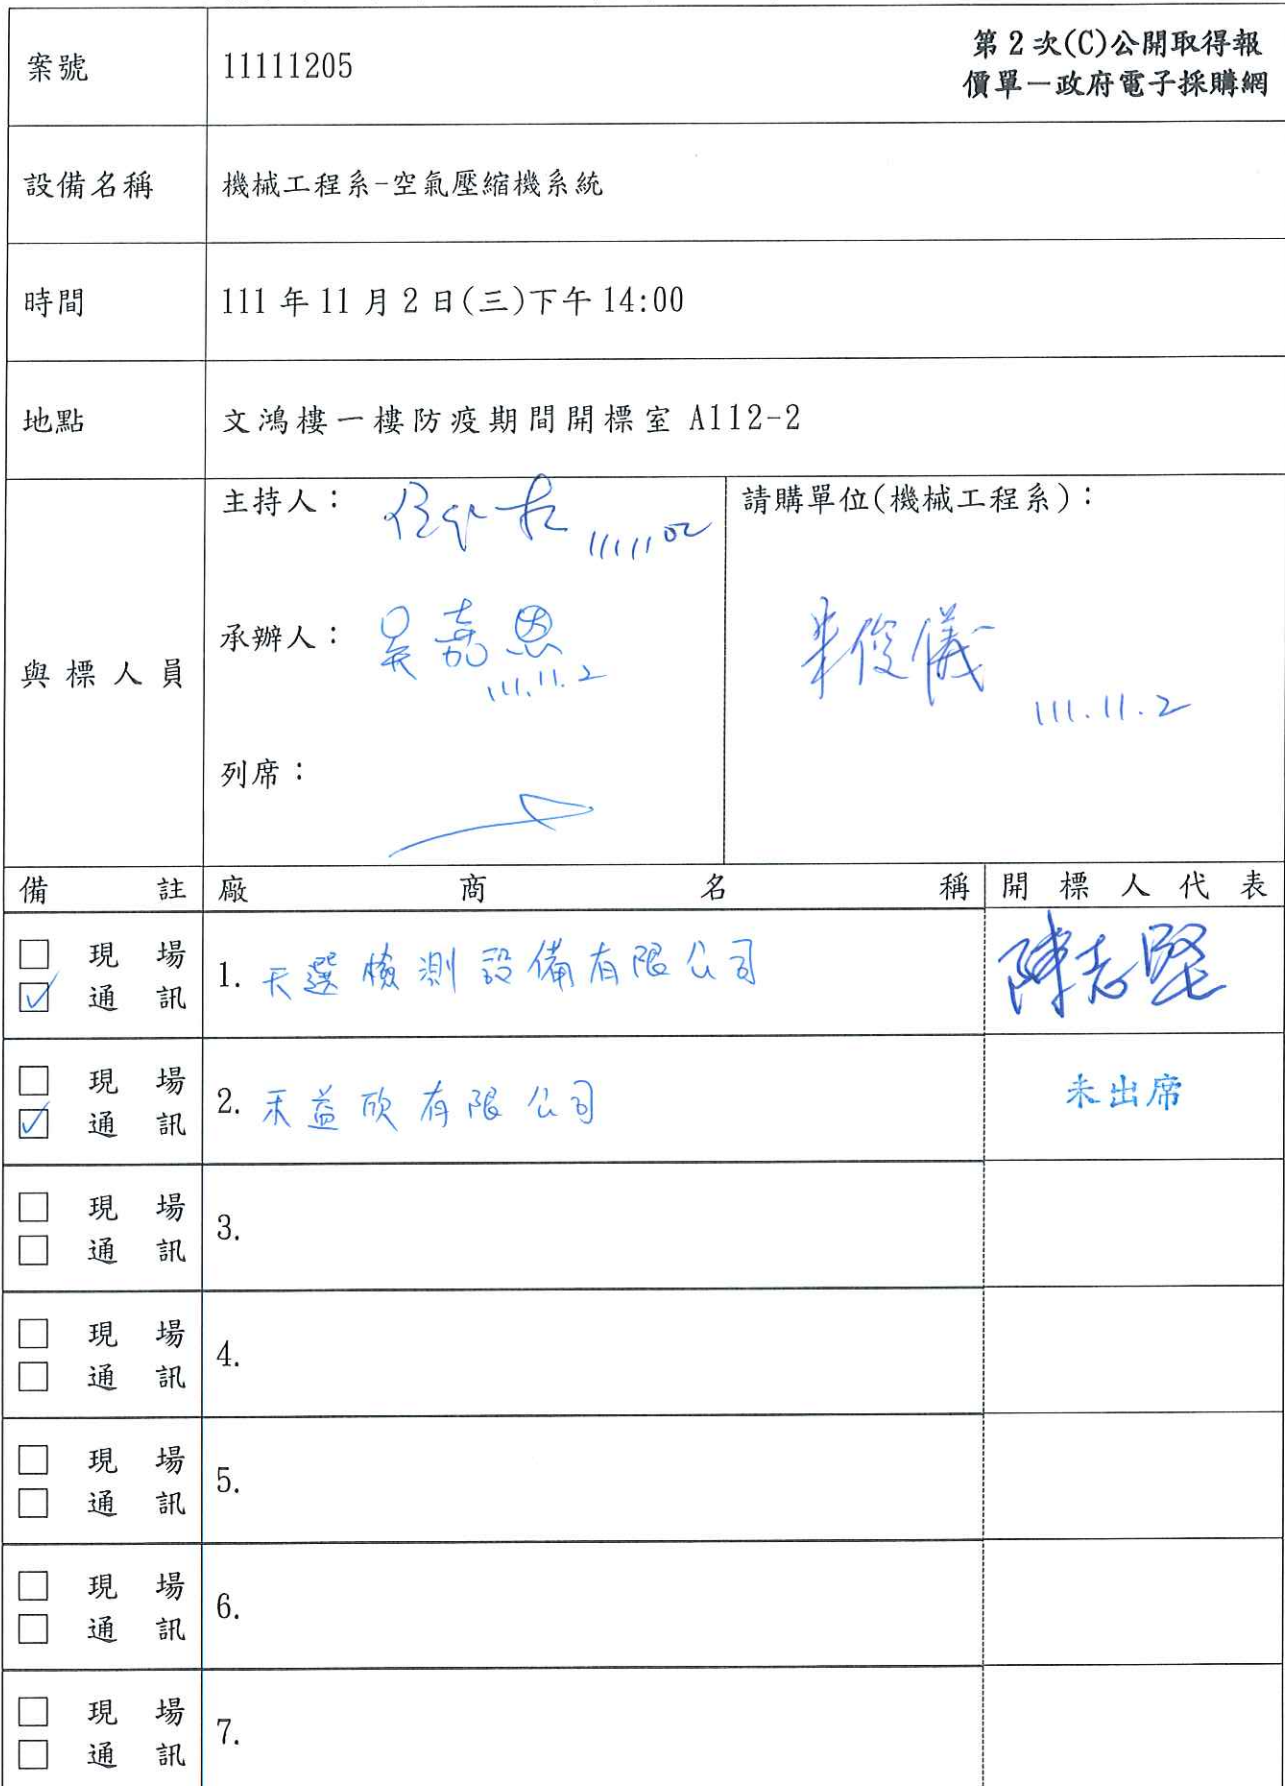 案號 11111205 第2次(C)公開取得報
價單－政府電子採購網
設備名稱 機械工程系-空氣壓縮機系統
時間 111年11月2日(三)下午14:00
地點 文鴻樓一樓防疫期間開標室 A112-2
與標人員
主持人： 1111102
承辦人：吳嘉恩
111.11.2
列席：
請購單位(機械工程系)：
俊儀
111.11.2
備註 廠商名稱 開標人代表
□ 現場
☑ 通訊
1. 天選檢測設備有限公司 陳志堅
□ 現場
☑ 通訊
2. 禾益欣有限公司 未出席
□ 現場
□ 通訊
3.
□ 現場
□ 通訊
4.
□ 現場
□ 通訊
5.
□ 現場
□ 通訊
6.
□ 現場
□ 通訊
7.